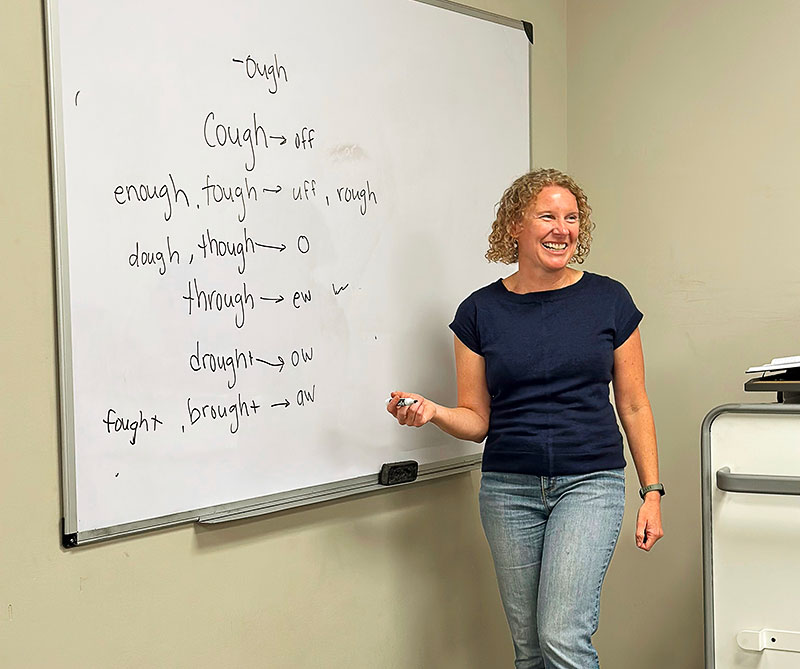 -ough
Cough → off
enough, tough → uff, rough
dough, though → O
through → ew w
drought → ow
fought, brought → aw